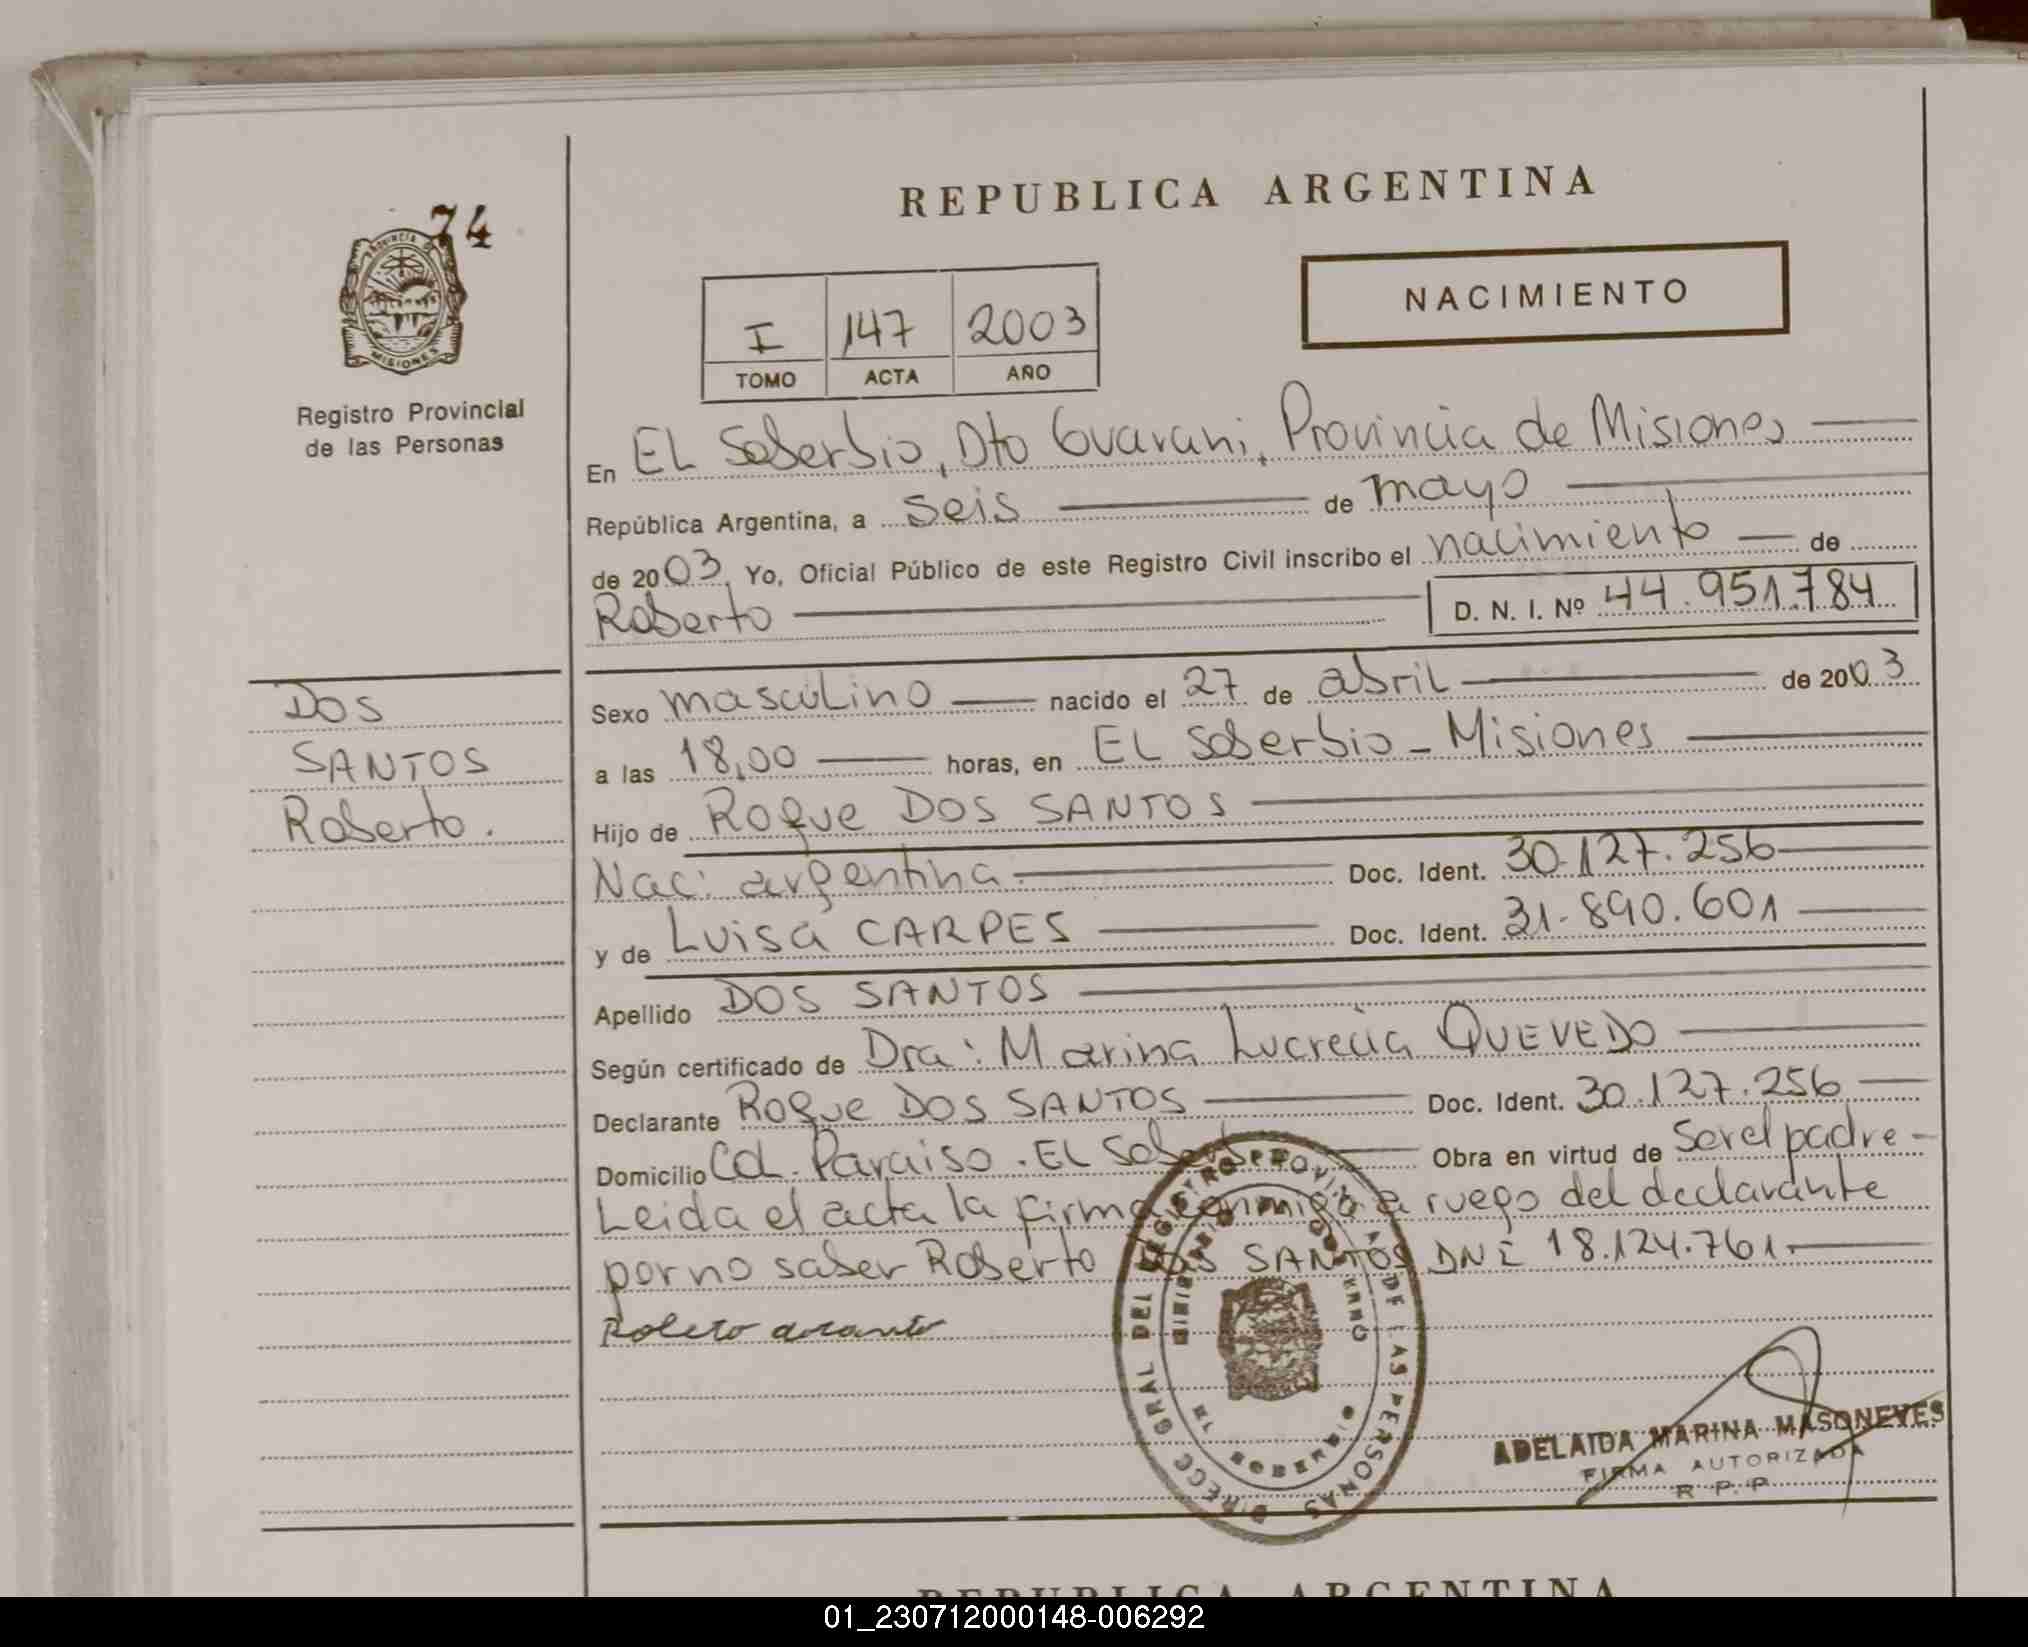 74
PROVINCIA DE
MISIONES
Registro Provincial
de las Personas
DOS
SANTOS
Roberto.
REPUBLICA ARGENTINA
NACIMIENTO
I 147 2003
TOMO ACTA AÑO
En EL Soberbio, Dto Guarani, Provincia de Misiones
República Argentina, a seis de mayo
de 2003. Yo, Oficial Público de este Registro Civil inscribo el nacimiento de
Roberto D. N. I. Nº 44.951.784
Sexo masculino nacido el 27 de abril de 2003
a las 18,00 horas, en EL Soberbio - Misiones
Hijo de Roque DOS SANTOS
Nac: argentina. Doc. Ident. 30.127.256
y de Luisa CARPES Doc. Ident. 31.890.601
Apellido DOS SANTOS
Según certificado de Dra: Marina Lucrecia QUEVEDO
Declarante Roque DOS SANTOS Doc. Ident. 30.127.256
Domicilio Col. Paraiso. EL Soberbio Obra en virtud de Ser el padre -
Leida el acta la firma conmigo a ruego del declarante
por no saber Roberto DOS SANTOS DNI 18.124.761.
DIRECC GRAL DEL REGISTRO PROVINCIAL DE LAS PERSONAS
EL SOBERBIO
ADELAIDA MARINA MASONEVES
FIRMA AUTORIZADA
R.P.P.
REPUBLICA ARGENTINA
01_230712000148-006292